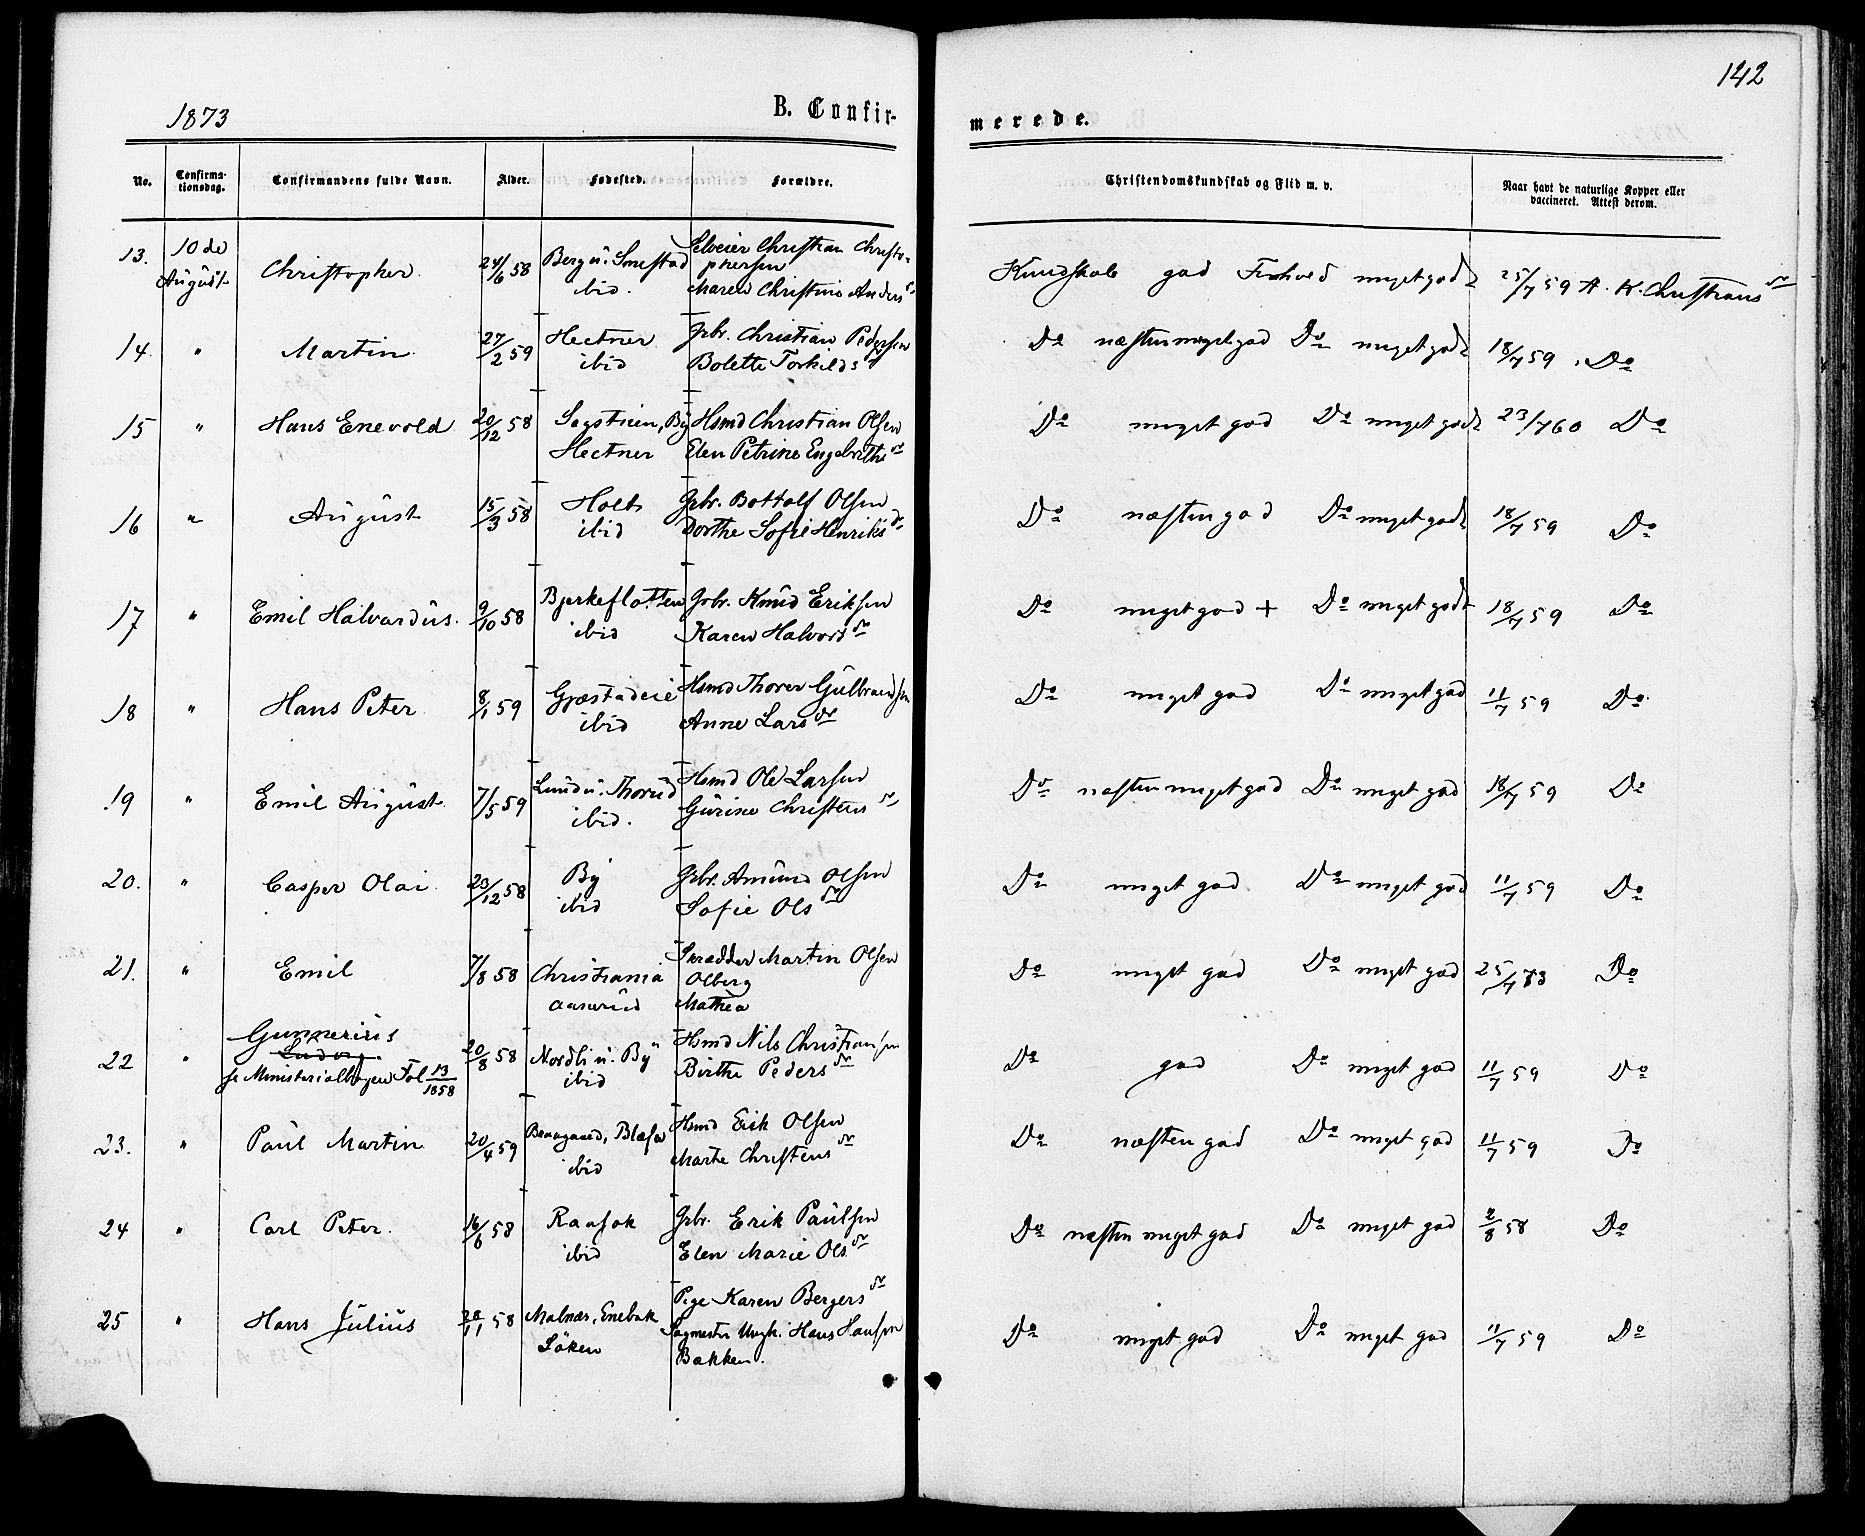 142
1873
B. Confir-
merede.
No.
Confirma-
tionsdag.
Confirmandens fulde Navn.
Alder.
Fødested.
Forældre.
Christendomskundskab og Flid m. v.
Naar havt de naturlige Kopper eller
vaccineret. Attest derom.
13. 10de August Christopher 24/6 58 Berg u. Smestad ibid. Selveier Christian Christo-
phersen
Maren Christine Andersdr
Kundskab god Forhold meget godt 25/7 59 A. K. Christians
14. " Martin 27/2 59 Hectner ibid Gbr. Christian Pedersen
Bolette Torkildsdr
Do næsten meget god Do meget godt 18/7 59 Do
15 " Hans Enevold 20/12 58 Sagstuen, By Hsmd Christian Olsen
Hectner Elen Petrine Engebrethsdr
Do meget god Do meget godt 23/7 60 Do
16 " August 15/3 58 Holt ibid Gbr. Bottolf Olsen
Dorthe Sofie Henriksdr
Do næsten god Do meget godt 18/7 59 Do
17 " Emil Halvardus. 9/10 58 Bjerkeflotten ibid Gbr. Knud Eriksen
Karen Halvorsdr
Do meget god + Do meget godt 18/7 59 Do
18 " Hans Peter 8/1 59 Gjæstadeie ibid Hsmd Thorer Gulbrandsen
Anne Larsdr
Do meget god Do meget god 11/7 59 Do
19 " Emil August 7/5 59 Lund u. Thorud ibid. Hsmd Ole Larsen
Gurine Christensdr
Do næsten meget god Do meget god 18/7 59 Do
20. " Casper Olai 23/12 58 By ibid Gbr. Amund Olsen
Sofie Olsdr
Do meget god Do meget god 11/7 59 Do
21. " Emil 7/8 58 Christiania Skrædder Martin Olsen
Olberg
Aanerud Mathea
Do meget god Do meget god 25/7 73 Do
Gunnerius
22 " Ludvig 20/8 58 Nordli u. By ibid Hsmd Nils Christiansen
se Ministerialbogen Fol 13/1858 Birthe Pedersdr
Do god Do meget god 11/7 59 Do
23. " Paul Martin 20/4 59 ibid Hsmd Erik Olsen
Marthe Christensdr
Do næsten god Do meget god 11/7 59 Do
24 " Carl Peter. 16/6 58 Raasok ibid Gbr. Erik Paulsen
Elen Marie Olsdr
Do næsten meget god Do meget god 2/8 58 Do
25 " Hans Julius 28/11 58 Malnæs, Enebak Pige Karen Bergersdr
Löken Sagmester Ungk. Hans Hansen
Bakken.
Do meget god Do meget god 11/7 59 Do